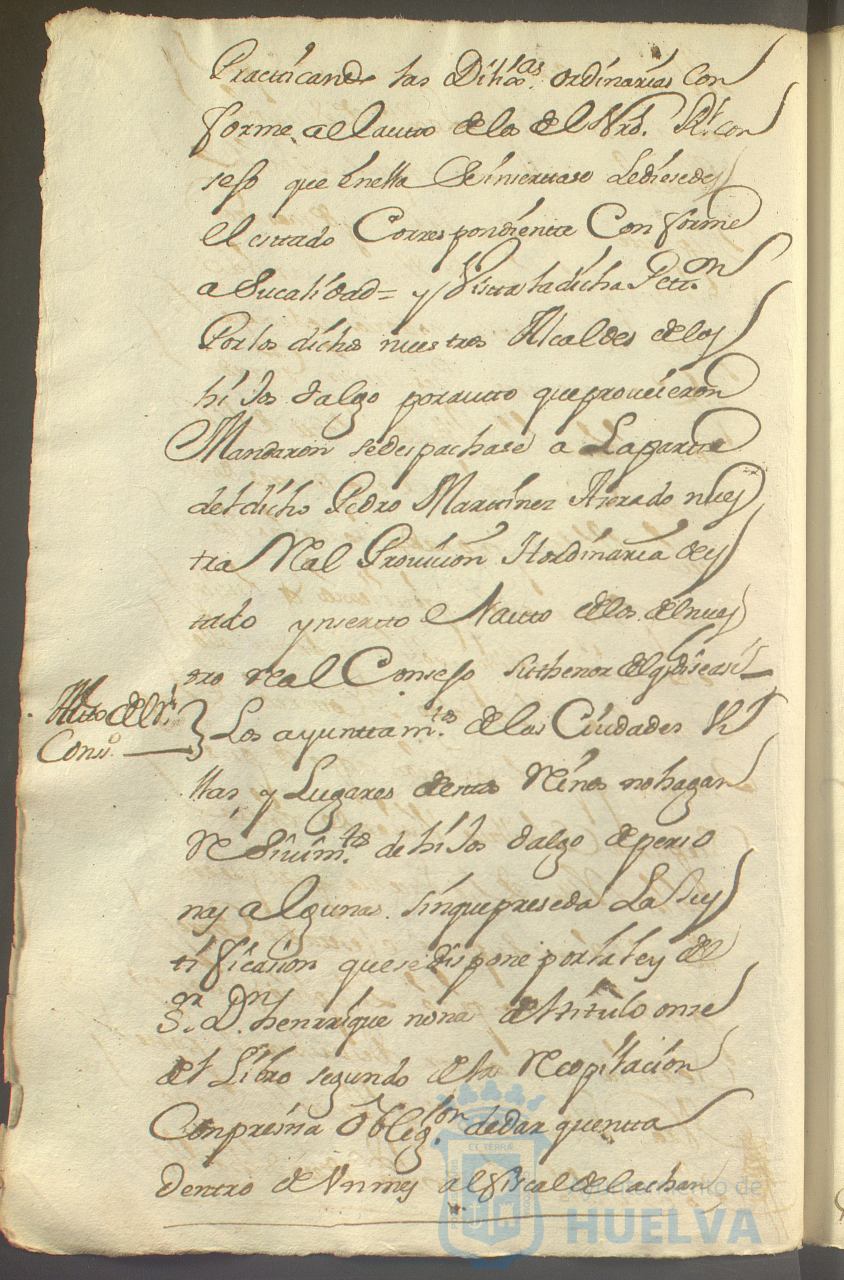 Practicando las Dilig.as ordinarias Con
forme al lauto de los del Nro. Rl. con
sejo que en ella Se insertase Sediesedes
el estado Correspondiente Conforme
a Sucalidad = y Vista ladicha Petti.on
Por los dichos nuestros Alcaldes de los
hijos dalgo por autto que proveieron
Mandaron sedespachase a La partte
del dicho Pedro Marttinez nues
tra Real Provision Hordinaria des
tado ynsertto Nauto de los del nues
tro real Consejo Suthenor del q dise asi
Auto del Rl.
Cons.o
Los ayunttam.tos de las Ciudades Vi
llas y Lugares destos Reinos no hagan
Resivim.tos de hijos dalgo de perso
nas algunas. sin que preseda La Jus
tificasion que se dispone por la ley del
S.or D.n henrrique nona del titulo onse
del Libro segundo de la Recopilación
Con presisa Oblig.on de dar quentta
dentro de Un mes al fiscal de la chan
EL TERRA
Ayuntamiento de
HUELVA